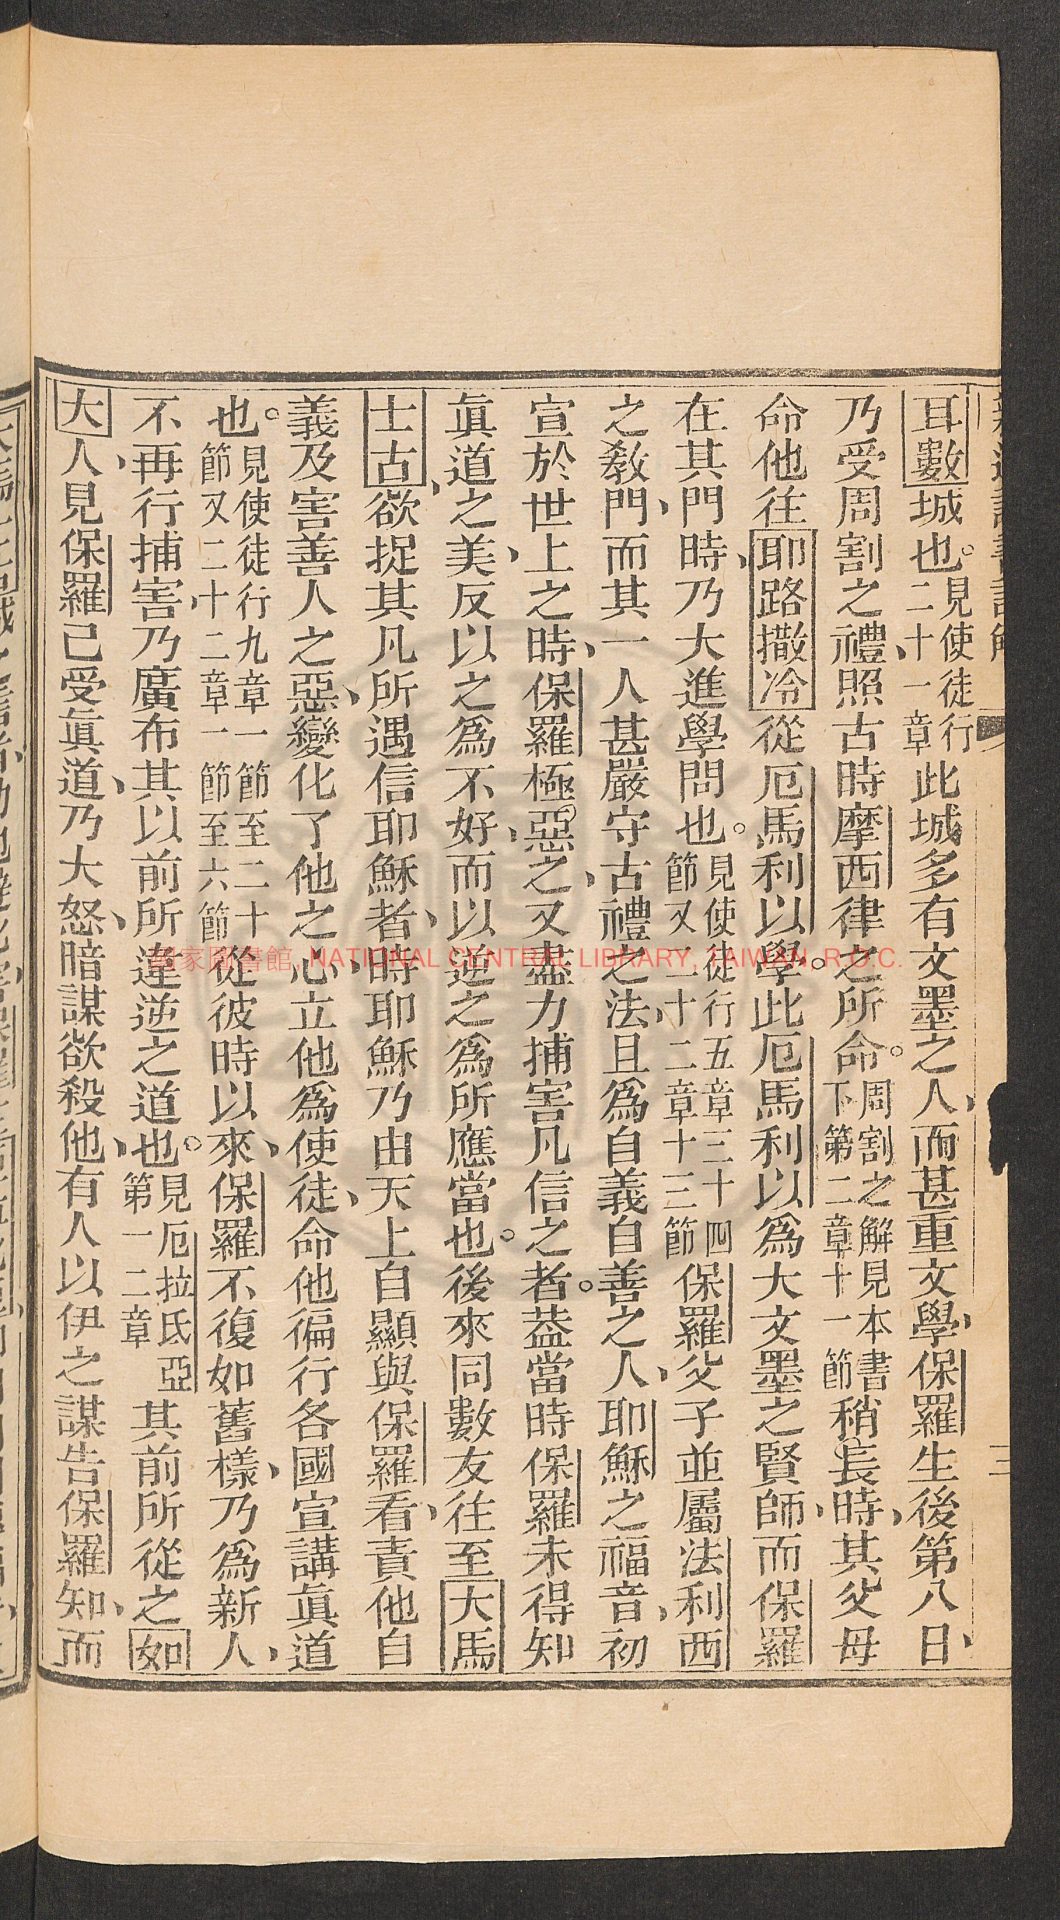 耳數城也。見使徒行二十一章此城多有文墨之人、而甚重文學、保羅生後第八日、
乃受周割之禮、照古時摩西律之所命。周割之解見本書下第二章十一節稍長時、其父母
命他往耶路撒冷從厄馬利以學。此厄馬利以為大文墨之賢師、而保羅
在其門時、乃大進學問也。見使徒行五章三十四節又二十二章十三節保羅父子並屬法利西
之教門、而其一人甚嚴守古禮之法、且為自義自善之人、耶穌之福音、初
宣於世上之時、保羅極惡之、又盡力捕害凡信之者。葢當時保羅未得知
眞道之美、反以之為不好、而以逆之為所應當也。後來同數友往至大馬
士古、欲捉其凡所遇信耶穌者、時耶穌乃由天上自顯與保羅看、責他自
義及害善人之惡、變化了他之心、立他為使徒、命他徧行各國宣講眞道
也。見使徒行九章一節至二十節又二十二章一節至六節從彼時以來、保羅不復如舊樣、乃為新人、
不再行捕害、乃廣布其以前所違逆之道也。見厄拉氐亞第一二章其前所從之如
大人、見保羅己受眞道、乃大怒、暗謀欲殺他、有人以伊之謀告保羅知、而
三
國家圖書館 NATIONAL CENTRAL LIBRARY, TAIWAN, R.O.C.